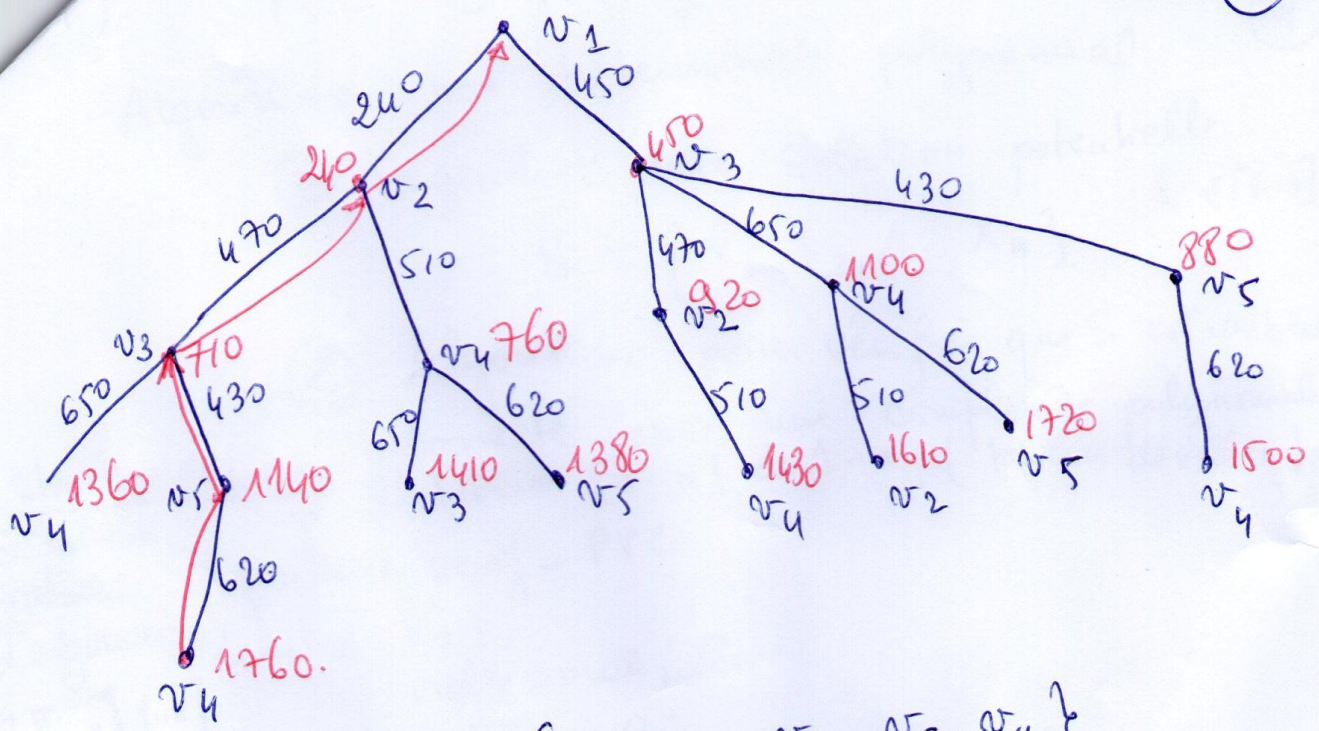 v1
240 450
240 v2 450 v3 430
470 510 470 650 880 v5
v3 710 v4 760 920 v2 1100 v4 620
650 430 650 620 510 510 620
1360 v4 v5 1140 1410 v3 1380 v5 1430 v4 1610 v2 1720 v5 1500 v4
620
1760.
v4